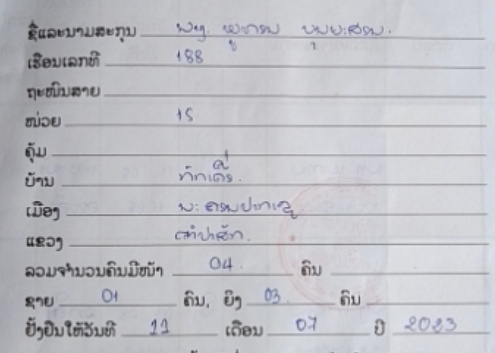 ຊື່ແລະນາມສະກຸນ ພງ. ບຸນຍະສອນ.
ເຮືອນເລກທີ 188
ຖະໜົນສາຍ
ໜ່ວຍ 15
ຄຸ້ມ
ບ້ານ
ເມືອງ
ແຂວງ ຈຳປາສັກ.
ລວມຈຳນວນຄົນມີໜ້າ 04. ຄົນ
ຊາຍ 01 ຄົນ, ຍິງ 03. ຄົນ
ຢັ້ງຢືນໃຫ້ວັນທີ 11 ເດືອນ 07 ປີ 2023